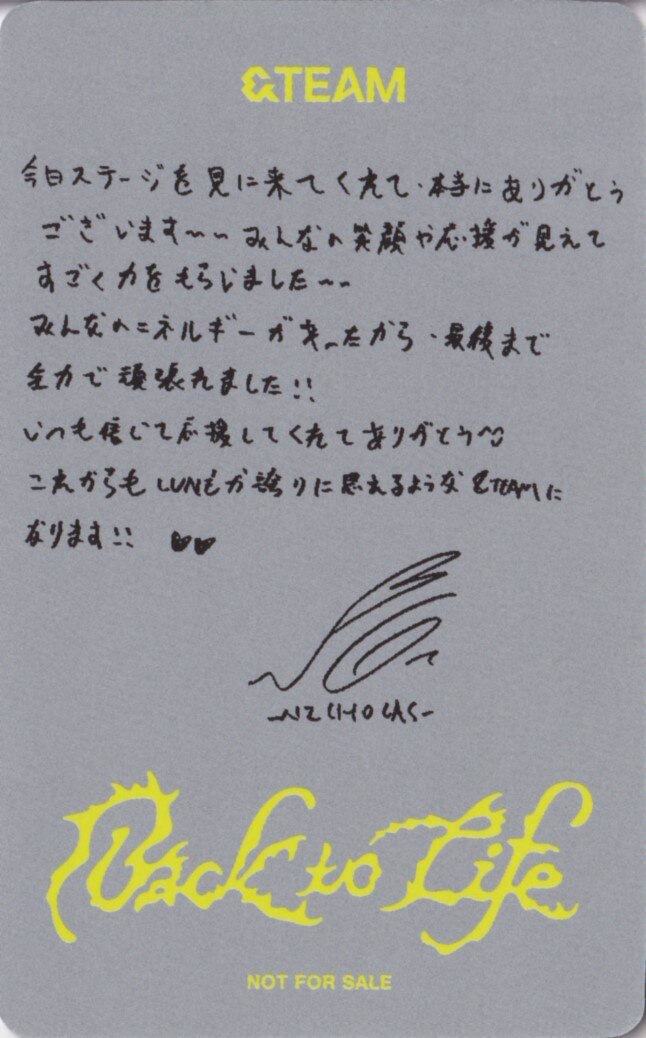 &TEAM
今日ステージを見に来てくれて、本当にありがとう
ございます~~みんなの笑顔や応援が見えて
すごく力をもらいました~~
みんなのエネルギーがあったから、最後まで
全力で頑張れました!!
いつも信じて応援してくれてありがとう
これからもLUNÉが誇りに思えるような&TEAMに
なります!!
-NICHOLAS-
Back to Life
NOT FOR SALE